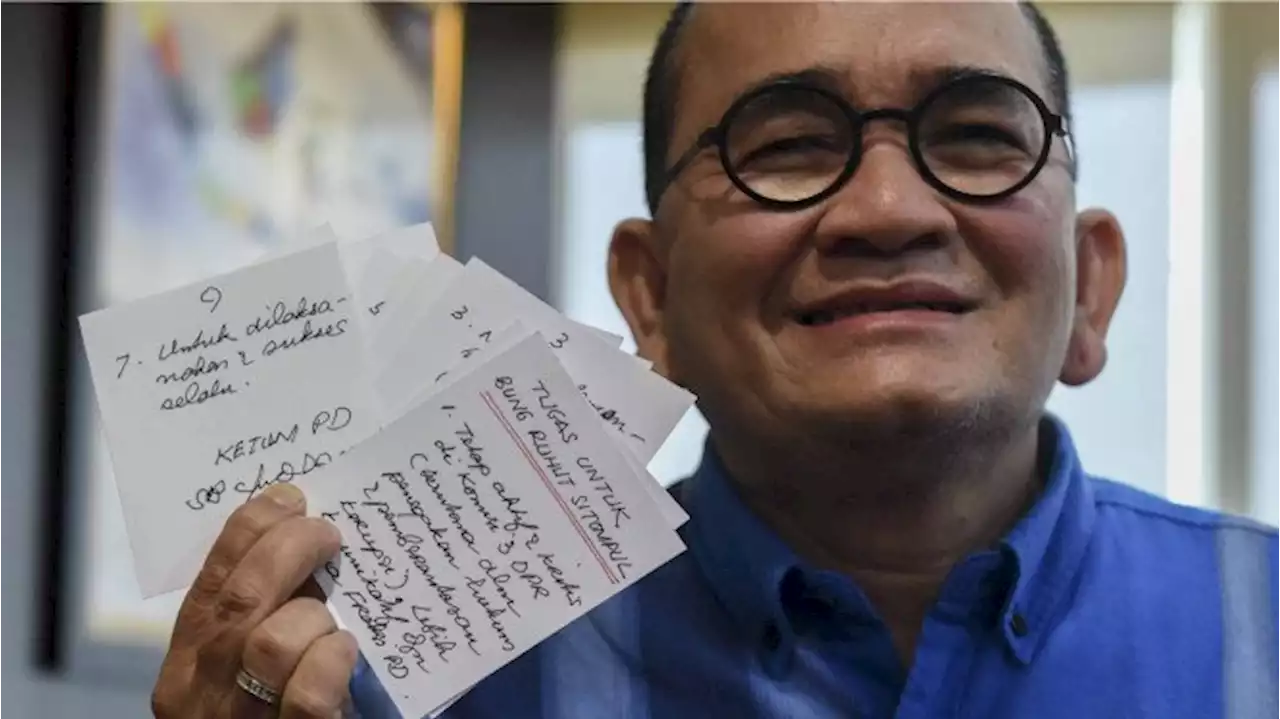 9
7. Untuk dilaksa-
nakan & sukses
selalu.
KETUM PD
5
3.
3
TUGAS UNTUK
BUNG RUHUT SITOMPUL
1. Tetap aktif & kritis
di Komisi 3 DPR
(terutama dlm
penegakan hukum
& pemberantasan
korupsi). Lebih
komunikatif dgn
FRAKSI PD.